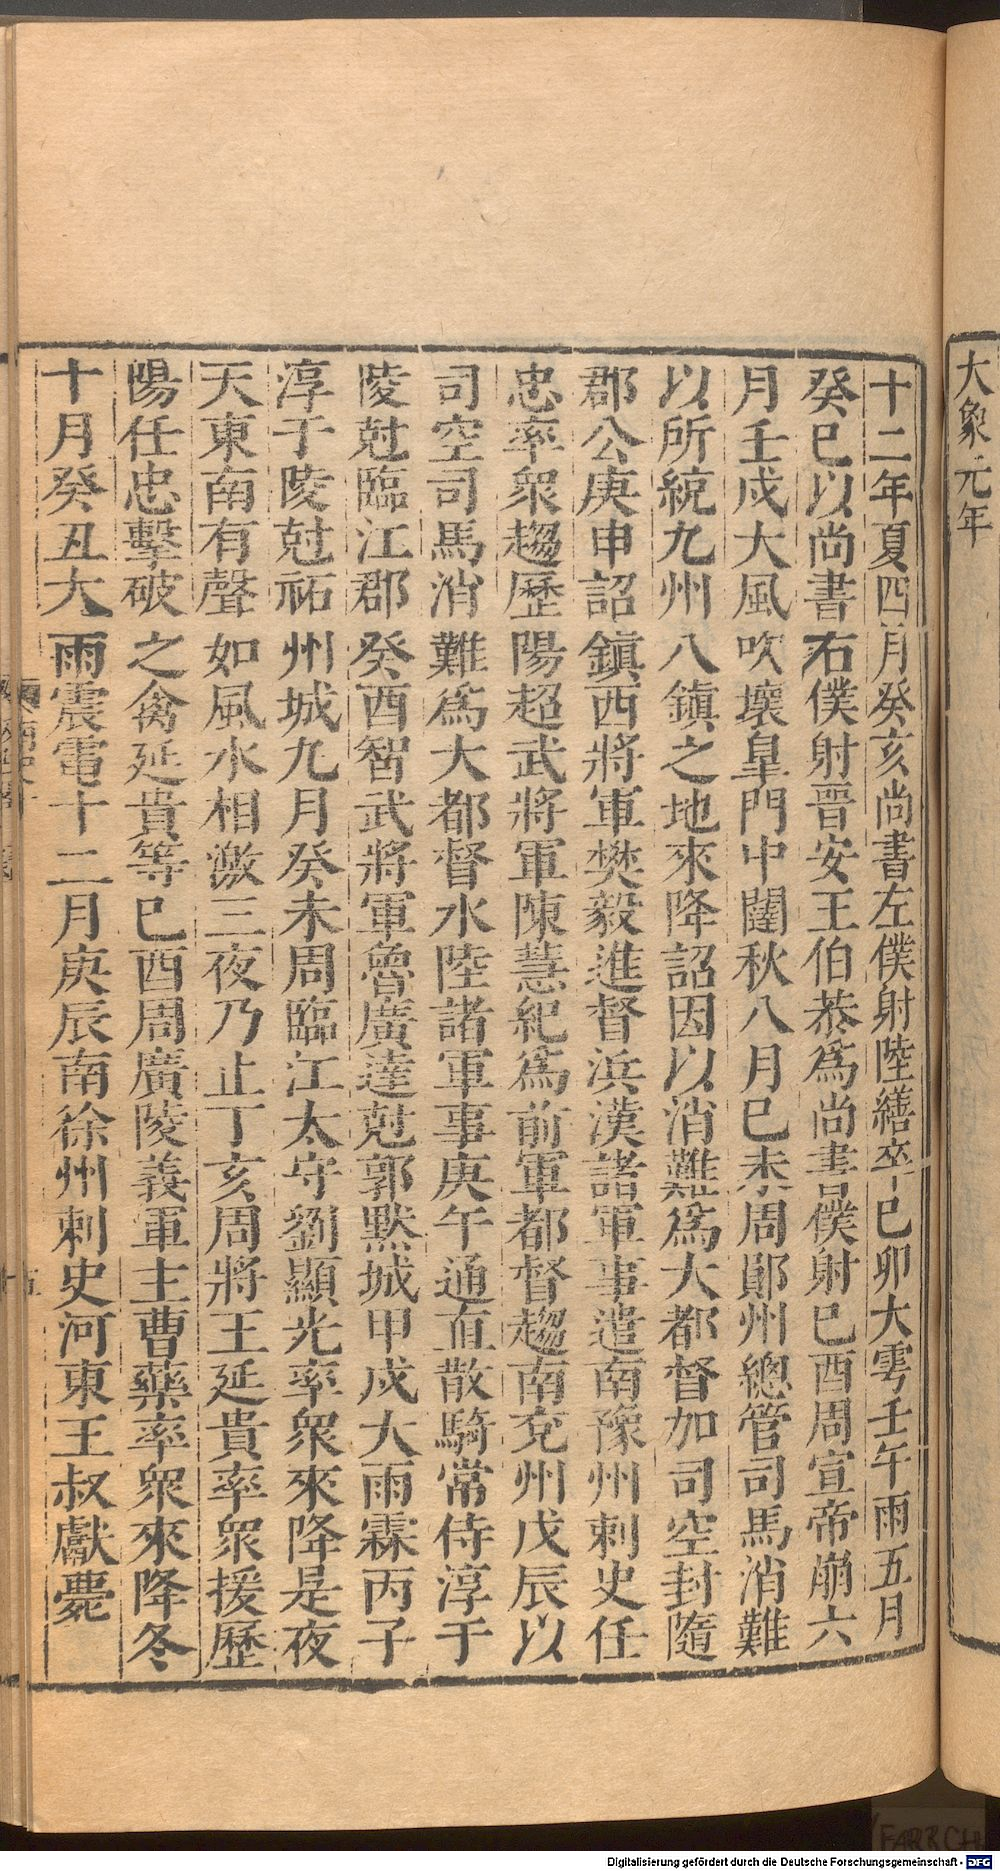 大象元年
十二年夏四月癸亥尚書左僕射陸繕卒巳卯大雩壬午雨五月
癸巳以尚書右僕射晋安王伯恭爲尚書僕射巳酉周宣帝崩六
月壬戍大風吹壞皐門中闥秋八月巳未周鄖州總管司馬消難
以所統九州八鎮之地來降詔因以消難爲大都督加司空封隨
郡公庚申詔鎮西將軍樊毅進督浜漢諸軍事遣南豫州刺史任
忠率衆趨歷陽超武將軍陳慧紀爲前軍都督趨南兗州戊辰以
司空司馬消難爲大都督水陸諸軍事庚午通直散騎常侍淳于
陵尅臨江郡癸酉智武將軍魯廣達尅郭默城甲戍大雨霖丙子
淳于陵尅祐州城九月癸未周臨江太守劉顯光率衆來降是夜
天東南有聲如風水相激三夜乃止丁亥周將王延貴率衆援歷
陽任忠擊破之禽延貴等巳酉周廣陵義軍主曹藥率衆來降冬
十月癸丑大雨震電十二月庚辰南徐州刺史河東王叔獻薨
Digitalisierung gefördert durch die Deutsche Forschungsgemeinschaft - DFG